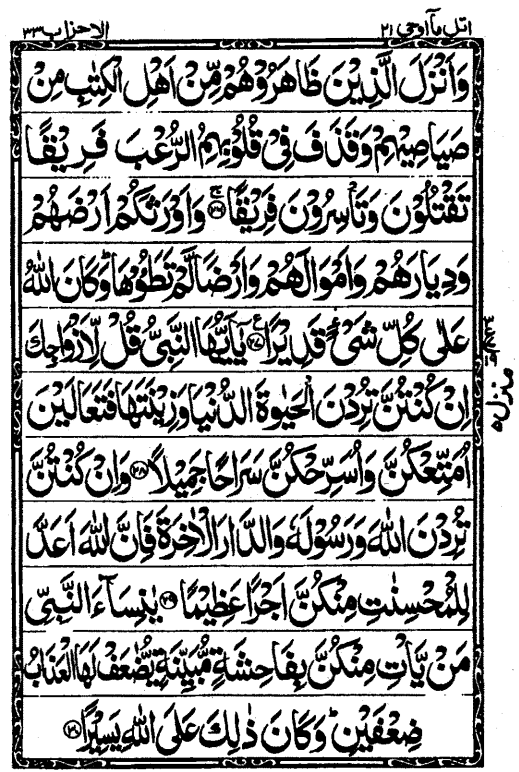 اتل مآ اوحی ۲۱
الاحزاب ۳۳
وَاَنْزَلَ الَّذِيْنَ ظَاهَرُوْهُمْ مِّنْ اَهْلِ الْكِتٰبِ مِنْ
صَيَاصِيْهِمْ وَقَذَفَ فِيْ قُلُوْبِهِمُ الرُّعْبَ فَرِيْقًا
تَقْتُلُوْنَ وَتَاْسِرُوْنَ فَرِيْقًا ۚ ﴿۲۶﴾ وَاَوْرَثَكُمْ اَرْضَهُمْ
وَدِيَارَهُمْ وَاَمْوَالَهُمْ وَاَرْضًا لَّمْ تَطَـُٔوْهَا ؕ وَكَانَ اللّٰهُ
عَلٰى كُلِّ شَيْءٍ قَدِيْرًا ﴿۲۷﴾ يٰۤاَيُّهَا النَّبِيُّ قُلْ لِّاَزْوَاجِكَ
اِنْ كُنْتُنَّ تُرِدْنَ الْحَيٰوةَ الدُّنْيَا وَزِيْنَتَهَا فَتَعَالَيْنَ
اُمَتِّعْكُنَّ وَاُسَرِّحْكُنَّ سَرَاحًا جَمِيْلًا ﴿۲۸﴾ وَاِنْ كُنْتُنَّ
تُرِدْنَ اللّٰهَ وَرَسُوْلَهٗ وَالدَّارَ الْاٰخِرَةَ فَاِنَّ اللّٰهَ اَعَدَّ
لِلْمُحْسِنٰتِ مِنْكُنَّ اَجْرًا عَظِيْمًا ﴿۲۹﴾ يٰنِسَآءَ النَّبِيِّ
مَنْ يَّاْتِ مِنْكُنَّ بِفَاحِشَةٍ مُّبَيِّنَةٍ يُّضٰعَفْ لَهَا الْعَذَابُ
ضِعْفَيْنِ ؕ وَكَانَ ذٰلِكَ عَلَى اللّٰهِ يَسِيْرًا ﴿۳۰﴾
منزل ۵